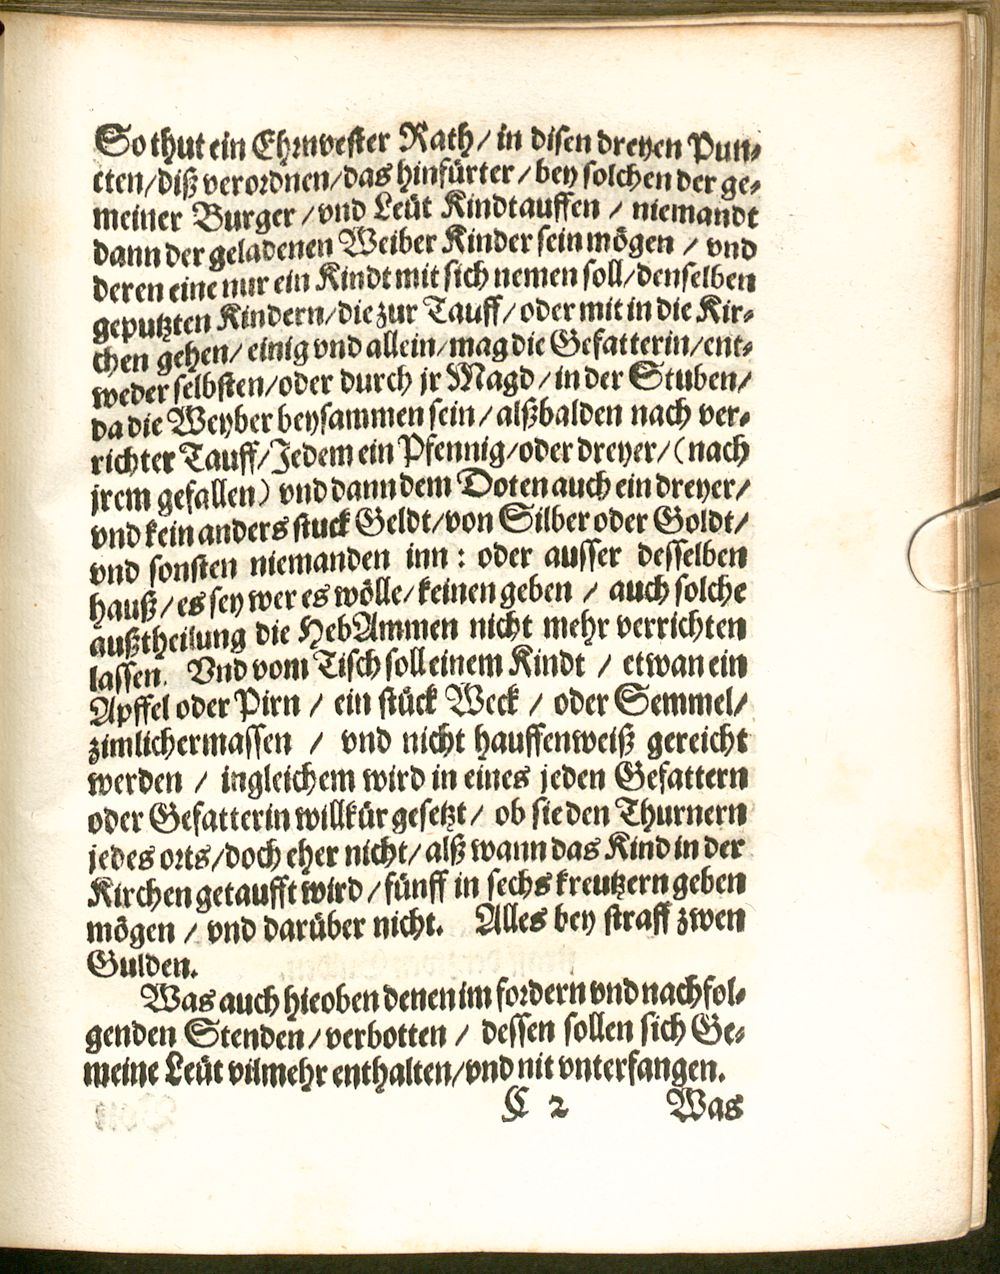 So thut ein Ehrnvester Rath / in disen dreyen Pun-
cten / diß verordnen / das hinfürter / bey solchen der ge-
meiner Burger / vnd Leüt Kindtauffen / niemandt
dann der geladenen Weiber Kinder sein mögen / vnd
deren eine nur ein Kindt mit sich nemen soll / denselben
geputzten Kindern / die zur Tauff / oder mit in die Kir-
chen gehen / einig vnd allein / mag die Gefatterin / ent-
weder selbsten / oder durch jr Magd / in der Stuben /
da die Weyber beysammen sein / alßbalden nach ver-
richter Tauff / Jedem ein Pfennig / oder dreyer / (nach
jrem gefallen) vnd dann dem Doten auch ein dreyer /
vnd kein anders stuck Geldt / von Silber oder Goldt /
vnd sonsten niemanden inn : oder ausser desselben
hauß / es sey wer es wölle / keinen geben / auch solche
außtheilung die HebAmmen nicht mehr verrichten
lassen. Vnd vom Tisch soll einem Kindt / etwan ein
Apffel oder Pirn / ein stück Weck / oder Semmel /
zimlichermassen / vnd nicht hauffenweiß gereicht
werden / ingleichem wird in eines jeden Gefattern
oder Gefatterin willkür gesetzt / ob sie den Thurnern
jedes orts / doch eher nicht / alß wann das Kind in der
Kirchen getaufft wird / fünff in sechs kreutzern geben
mögen / vnd darüber nicht. Alles bey straff zwen
Gulden.
Was auch hieoben denen im fordern vnd nachfol-
genden Stenden / verbotten / dessen sollen sich Ge-
meine Leüt vilmehr enthalten / vnd nit vnterfangen.
C 2 Was